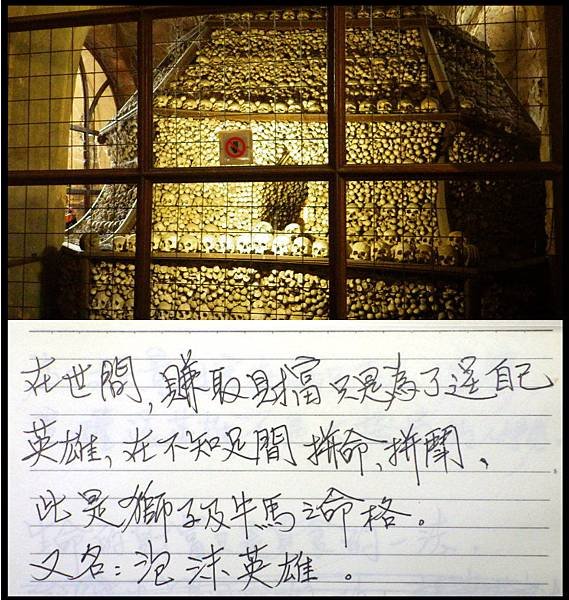 在世間，賺取財富只是為了逞自己
英雄，在不知足間拼命、拼鬥、
此是獅子及牛馬之命格。
又名：泡沫英雄。